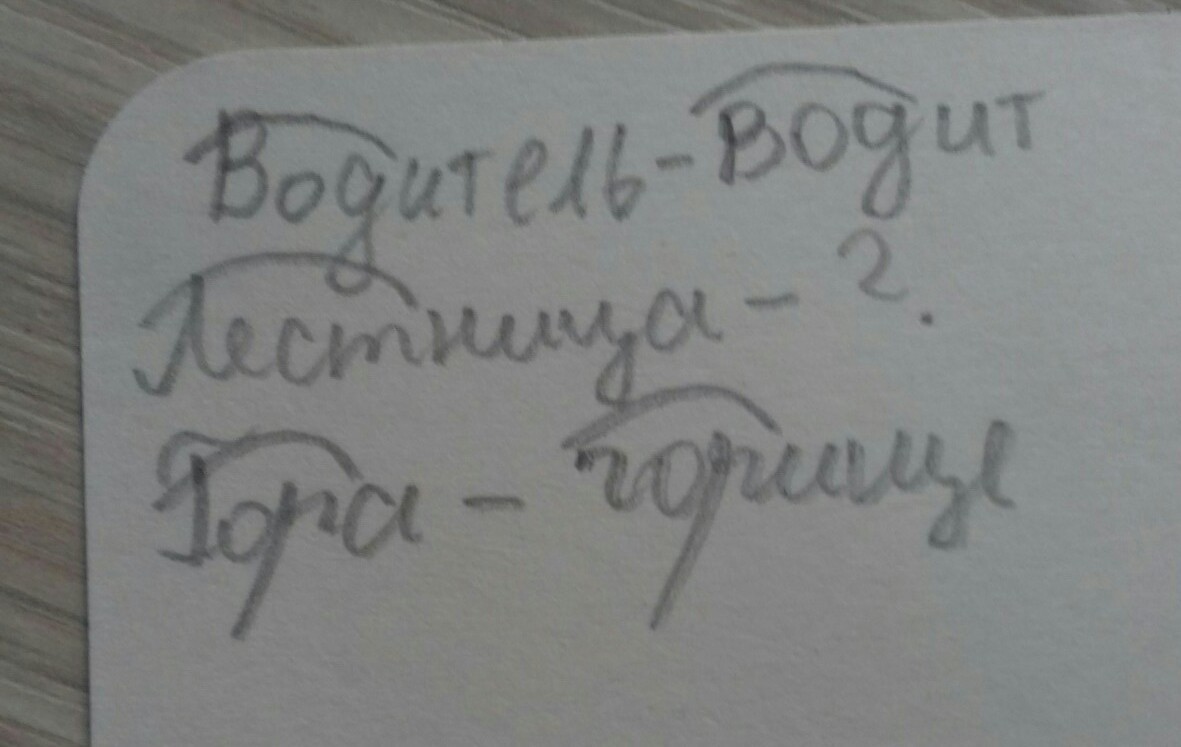 Водитель-водит
Лестница - ?.
Гора - горище